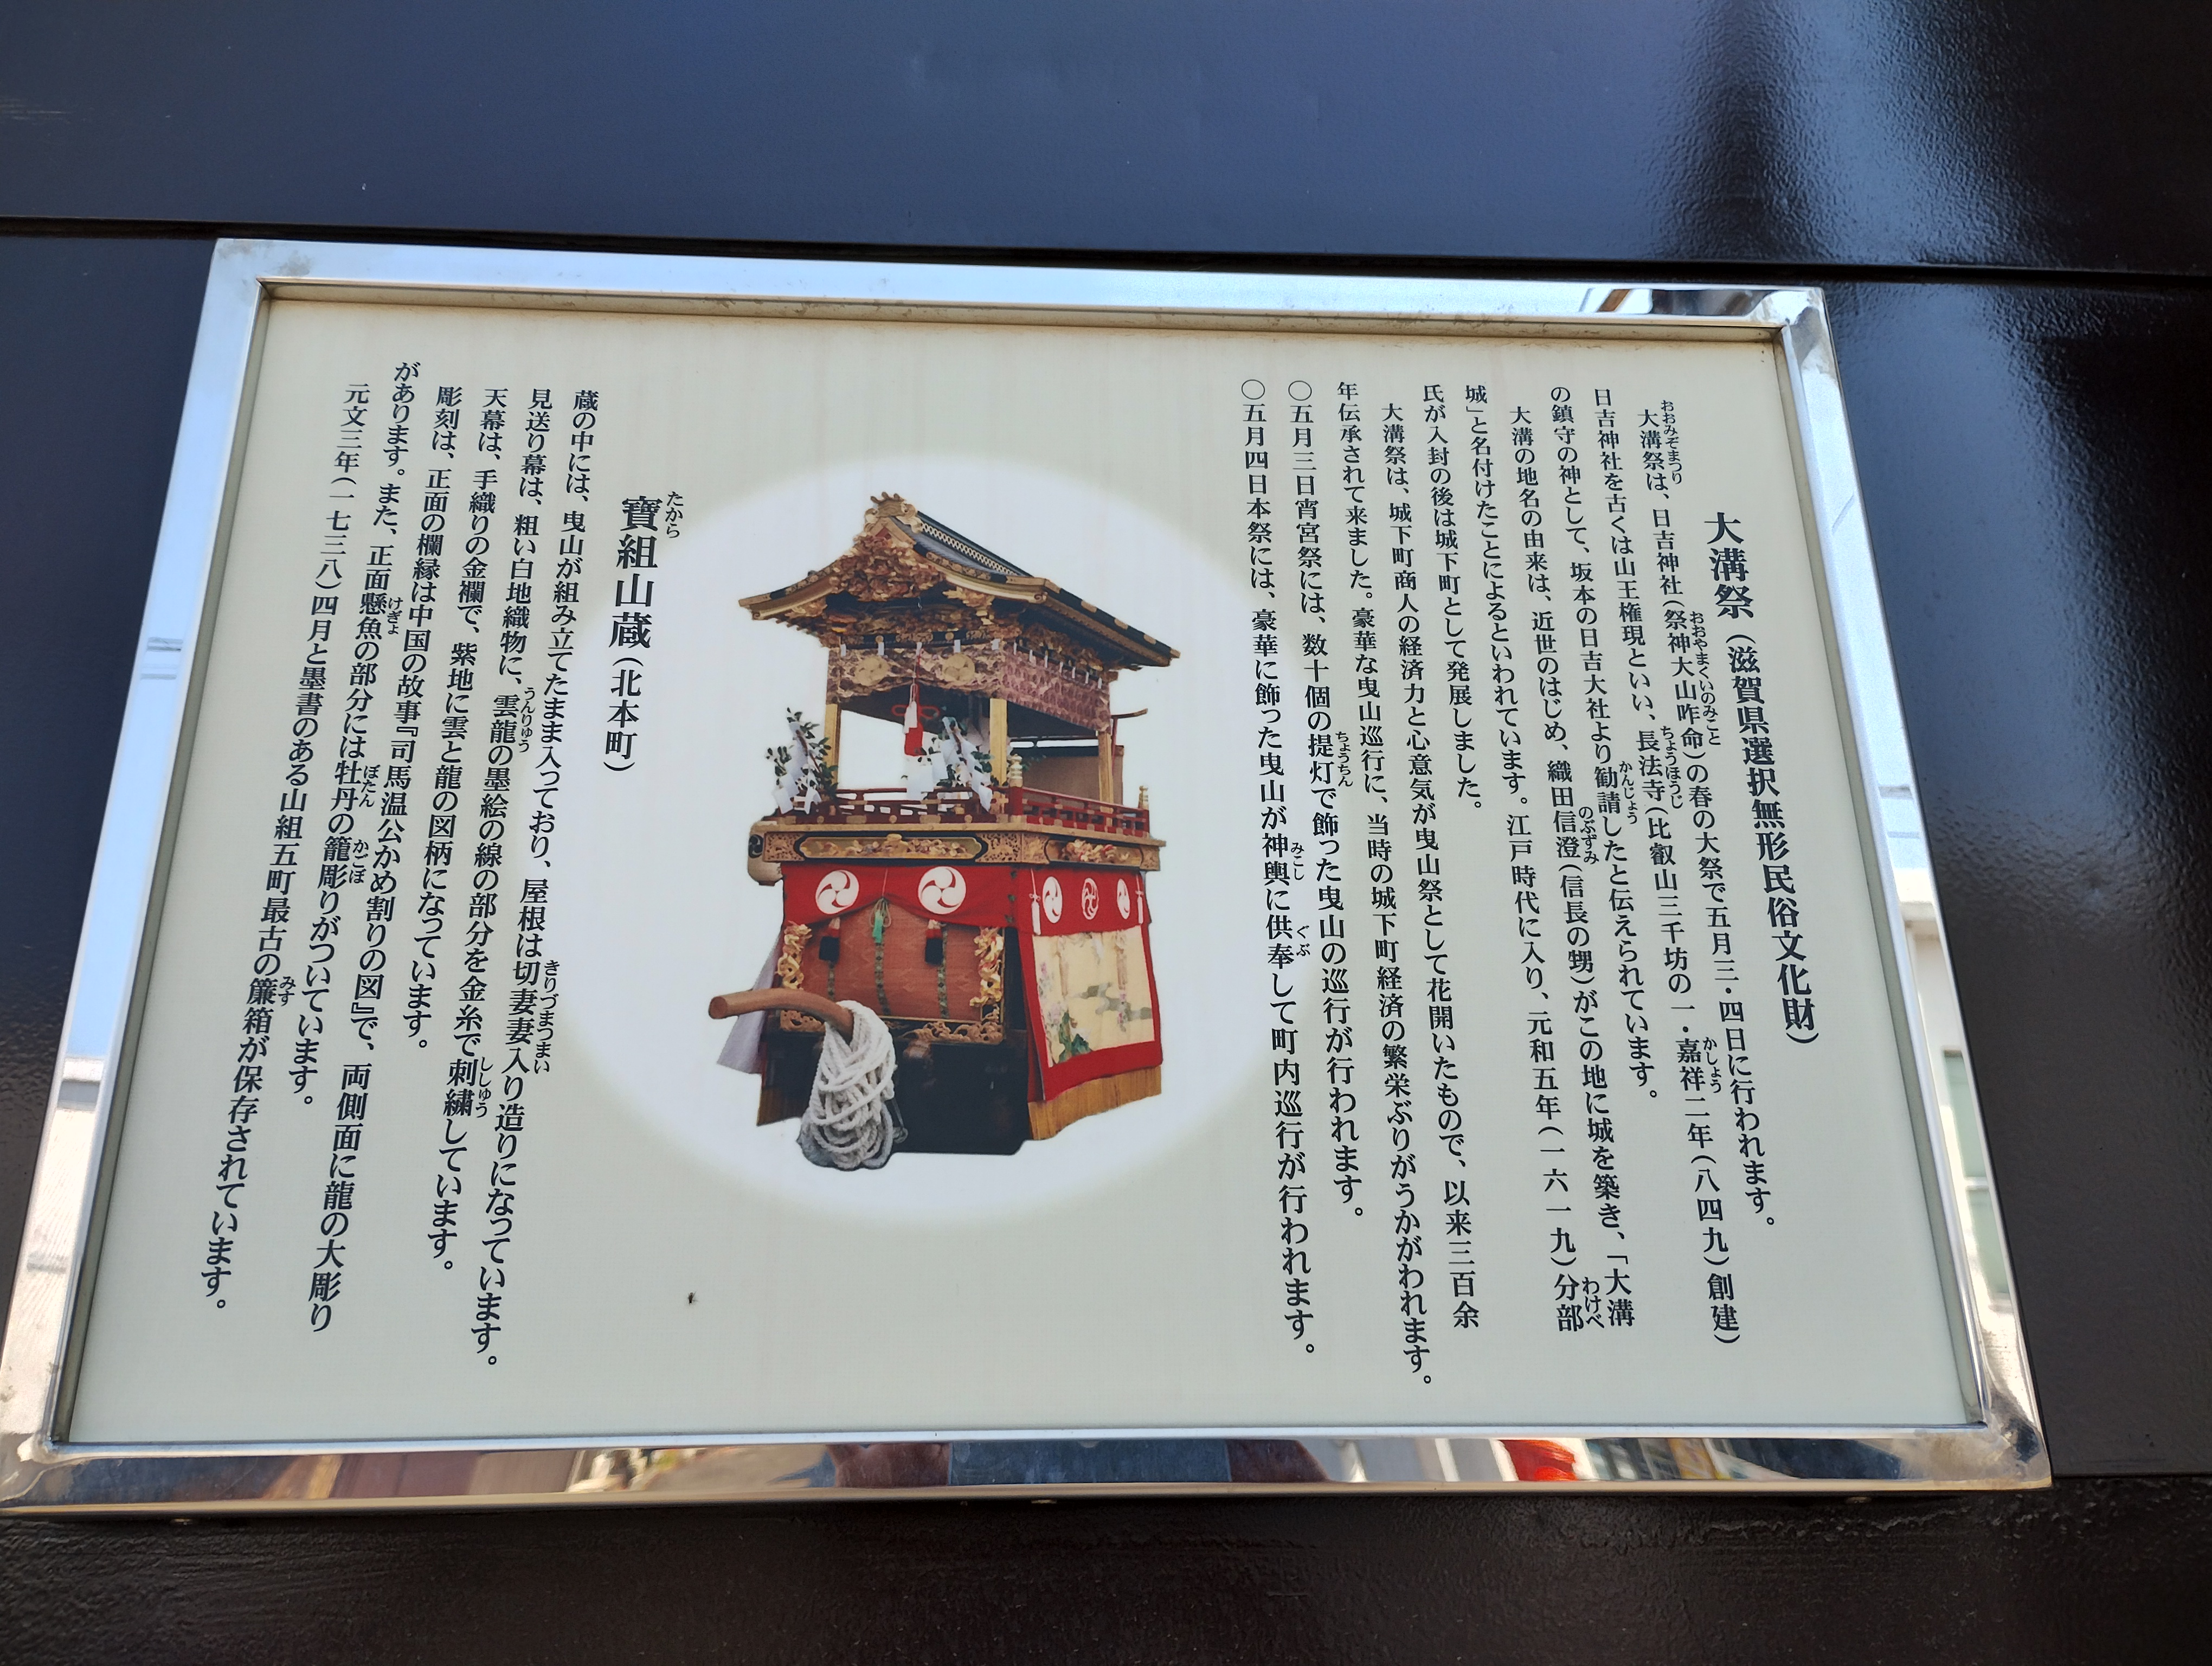 大溝祭（滋賀県選択無形民俗文化財）
大溝祭は、日吉神社（祭神大山咋命）の春の大祭で五月三・四日に行われます。
日吉神社を古くは山王権現といい、長法寺（比叡山三千坊の一・嘉祥二年（八四九）創建）
の鎮守の神として、坂本の日吉大社より勧請したと伝えられています。
大溝の地名の由来は、近世のはじめ、織田信澄（信長の甥）がこの地に城を築き、「大溝
城」と名付けたことによるといわれています。江戸時代に入り、元和五年（一六一九）分部
氏が入封の後は城下町として発展しました。
大溝祭は、城下町商人の経済力と心意気が曳山祭として花開いたもので、以来三百余
年伝承されて来ました。豪華な曳山巡行に、当時の城下町経済の繁栄ぶりがうかがわれます。
〇五月三日宵宮祭には、数十個の提灯で飾った曳山の巡行が行われます。
〇五月四日本祭には、豪華に飾った曳山が神輿に供奉して町内巡行が行われます。
寶組山蔵（北本町）
蔵の中には、曳山が組み立てたまま入っており、屋根は切妻妻入り造りになっています。
見送り幕は、粗い白地織物に、雲龍の墨絵の線の部分を金糸で刺繍しています。
天幕は、手織りの金襴で、紫地に雲と龍の図柄になっています。
彫刻は、正面の欄縁は中国の故事『司馬温公かめ割りの図』で、両側面に龍の大彫り
があります。また、正面懸魚の部分には牡丹の籠彫りがついています。
元文三年（一七三八）四月と墨書のある山組五町最古の簾箱が保存されています。